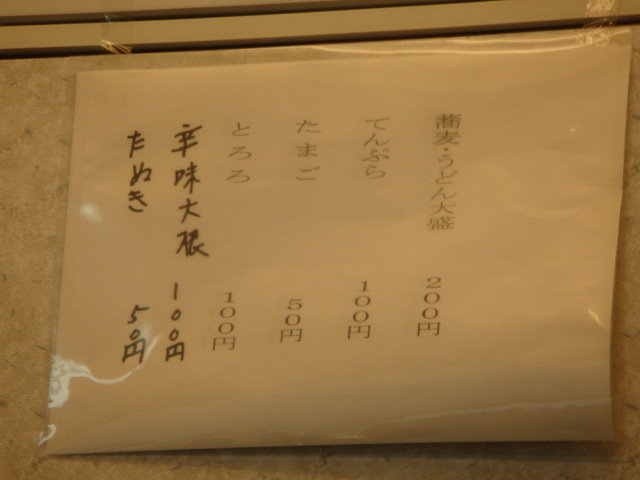 蕎麦・うどん大盛 200円
てんぷら 100円
たまご 50円
とろろ 100円
辛味大根 100円
たぬき 50円